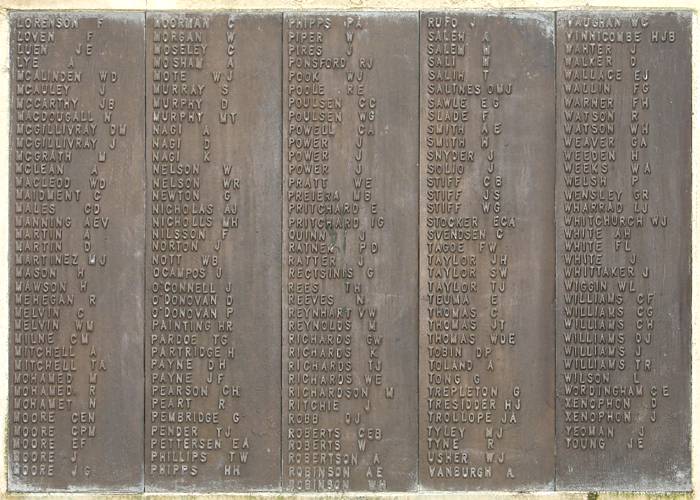 LORENSON F
LOVEN F
LUEN JE
LYE A
MCALINDEN WD
MCAULEY J
MCCARTHY JB
MACDOUGALL N
MCGILLIVRAY DM
MCGILLIVRAY J
MCGRATH M
MCLEAN A
MACLEOD WD
MAIDMENT C
MALES CD
MANNING AEV
MARTIN A
MARTIN D
MARTINEZ MJ
MASON H
MAWSON H
MEHEGAN R
MELVIN C
MELVIN WM
MILNE CM
MITCHELL A
MITCHELL TA
MOHAMED M
MOHAMED R
MOHAMET N
MOORE CEN
MOORE CPM
MOORE EF
MOORE J
MOORE JG
MOORMAN C
MORGAN W
MOSELEY C
MOSHAM A
MOTE WJ
MURRAY S
MURPHY D
MURPHY MT
NAGI A
NAGI D
NAGI K
NELSON W
NELSON WR
NEWTON G
NICHOLAS AJ
NICHOLLS MH
NILSSON F
NORTON J
NOTT WB
OCAMPOS J
O'CONNELL J
O'DONOVAN D
O'DONOVAN P
PAINTING HR
PARDOE TG
PARTRIDGE H
PAYNE DH
PAYNE JF
PEARSON CH
PEART R
PEMBRIDGE G
PENDER TJ
PETTERSEN EA
PHILLIPS TW
PHIPPS HH
PHIPPS PA
PIPER W
PIRES J
PONSFORD RJ
POOK WJ
POOLE RE
POULSEN CC
POULSEN WG
POWELL CA
POWER J
POWER J
POWER J
PRATT WE
PREIERA MB
PRITCHARD E
PRITCHARD IG
QUINN J
RATNEK PD
RATTER J
RECTSINIS G
REES TH
REEVES N
REYNHART VW
REYNOLDS M
RICHARDS GW
RICHARDS K
RICHARDS TJ
RICHARDS WE
RICHARDSON M
RITCHIE J
ROBB DJ
ROBERTS CEB
ROBERTS W
ROBERTSON A
ROBINSON AE
ROBINSON WH
RUFO J
SALEH A
SALEM M
SALI M
SALIH T
SALTNES OMJ
SAWLE EG
SLADE F
SMITH AE
SMITH H
SNYDER J
SOLJO J
STIFF CB
STIFF JS
STIFF WG
STOCKER ECA
SVENDSEN C
TAGOE FW
TAYLOR JH
TAYLOR SW
TAYLOR TJ
TEUMA E
THOMAS C
THOMAS JT
THOMAS WDE
TOBIN DP
TOLAND A
TONG G
TREPLETON G
TRESIDDER HJ
TROLLOPE JA
TYLEY WJ
TYNE RJ
USHER WJ
VANBURGH A
VAUGHAN WC
VINNICOMBE HJB
WAHTER J
WALKER D
WALLACE EJ
WALLIN FG
WARNER FH
WATSON R
WATSON WH
WEAVER GA
WEEDEN H
WEEKS WA
WELSH P
WENSLEY GR
WHARRAD LJ
WHITCHURCH WJ
WHITE AG
WHITE FL
WHITE J
WHITTAKER J
WIGGIN WL
WILLIAMS CF
WILLIAMS CG
WILLIAMS CH
WILLIAMS DJ
WILLIAMS J
WILLIAMS TR
WILSON L
WORDINGHAM CE
XENOPHON D
XENOPHON J
YEOMAN J
YOUNG JE